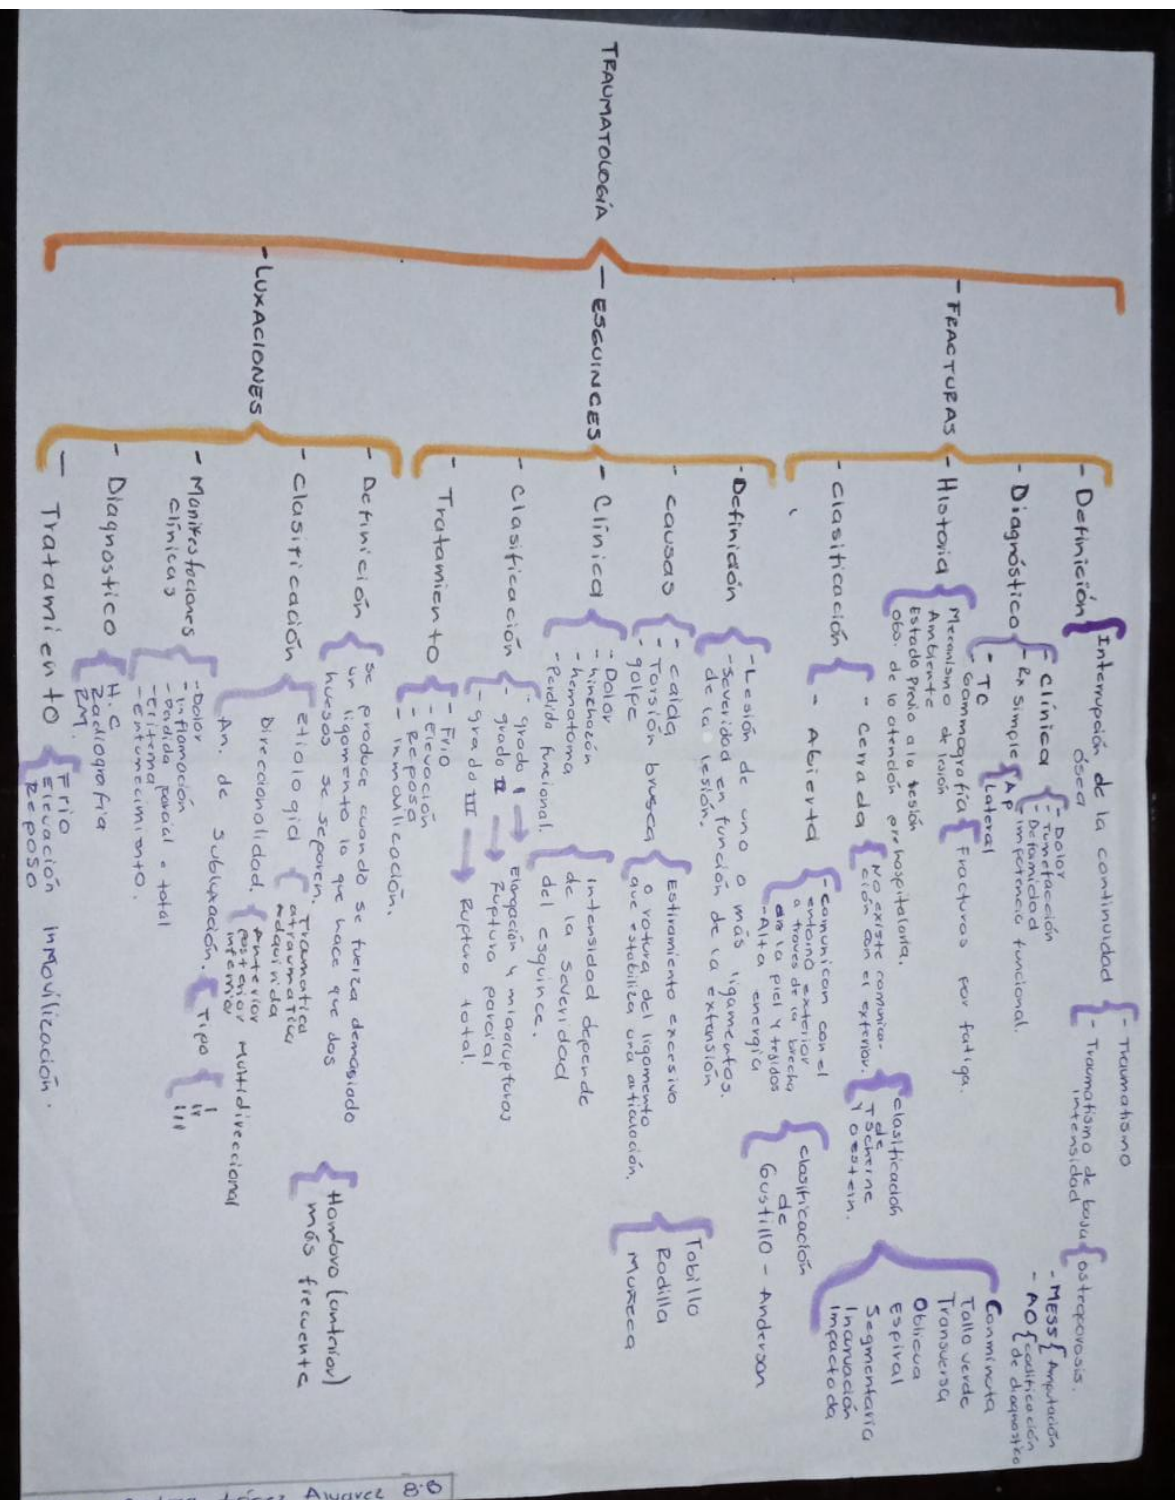 TRAUMATOLOGÍA
- FRACTURAS
- Definición
Interrupción de la continuidad
ósea
- Traumatismo
- Traumatismo de baja
intensidad
osteoporosis.
- Diagnóstico
- Clínica
- Dolor
- Tumefacción
- Defomidad
- impotencia funcional.
- Rx simple
AP
Lateral
- TC
- Gammografía
Fracturas por fatiga.
- Historia
Mecanismo de lesión
Ambiente
Estado Previo a la lesión
obs. de la atención prehospitalaria.
- Clasificación
- Cerrada
No existe comunica-
ción con el exterior.
clasificación
de
Tscherne
y Oestein.
- Abierta
- comunican con el
entorno exterior
a traves de la brecha
en la piel y tejidos
- Alta energía
clasificación
de
Gustillo - Anderson
- MESS
Amputación
- AO
codificación
de diagnostico
Conminuta
Tallo verde
Transversa
Oblicua
Espiral
Segmentaria
Incurvación
Impactada
- ESGUINCES
- Definición
- Lesión de uno o más ligamentos.
- severidad en función de la extensión
de la lesión.
- causas
- caida
- Torsión brusca
- golpe
Estiramiento excesivo
o rotura del ligamento
que estabiliza una articulación.
Tobillo
Rodilla
Muñeca
- Clínica
- Dolor
- hinchazón
- hematoma
- Perdida funcional.
Intensidad depende
de la severidad
del esguince.
- Clasificación
- grado I
Elongación y microrupturas
- grado II
Ruptura parcial
- grado III
Ruptura total.
- Tratamiento
- Frio
- Elevación
- Reposo
- inmovilicación.
- LUXACIONES
- Definición
se produce cuando se fuerza demasiado
un ligamento lo que hace que dos
huesos se separen.
Hombro (anterior)
más frecuente
- Clasificación
etiologia
Traumatica
atraumatica
Adquirida
Direccionalidad.
Anterior
posterior
inferior
Multidireccional
An. de subluxación.
Tipo
I
II
III
- Manifestaciones
clínicas
- Dolor
- inflamación
- Pérdida parcial o total
- Eritema
- entumecimiento.
- Diagnostico
H.C
Radiografía
RM.
- Tratamiento
Frio
Elevación
Reposo
inmovilización.
López Alvarez 8.0